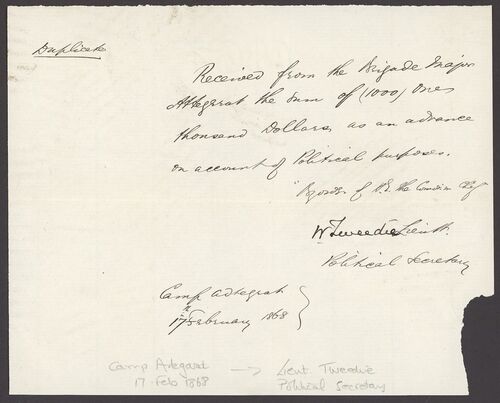 Duplicate
Received from the Brigade Major
Attegrat the Sum of (1000) One
thousand Dollars, as an advance
on account of Political purposes.
By order of H.E. the Comdr in Chief
W Tweedie Lieutt.
Political Secretary
Camp Adtegrat
17th February 1868
Camp Adegarat → Lieut. Tweedie
17 Feb 1868 Political Secretary